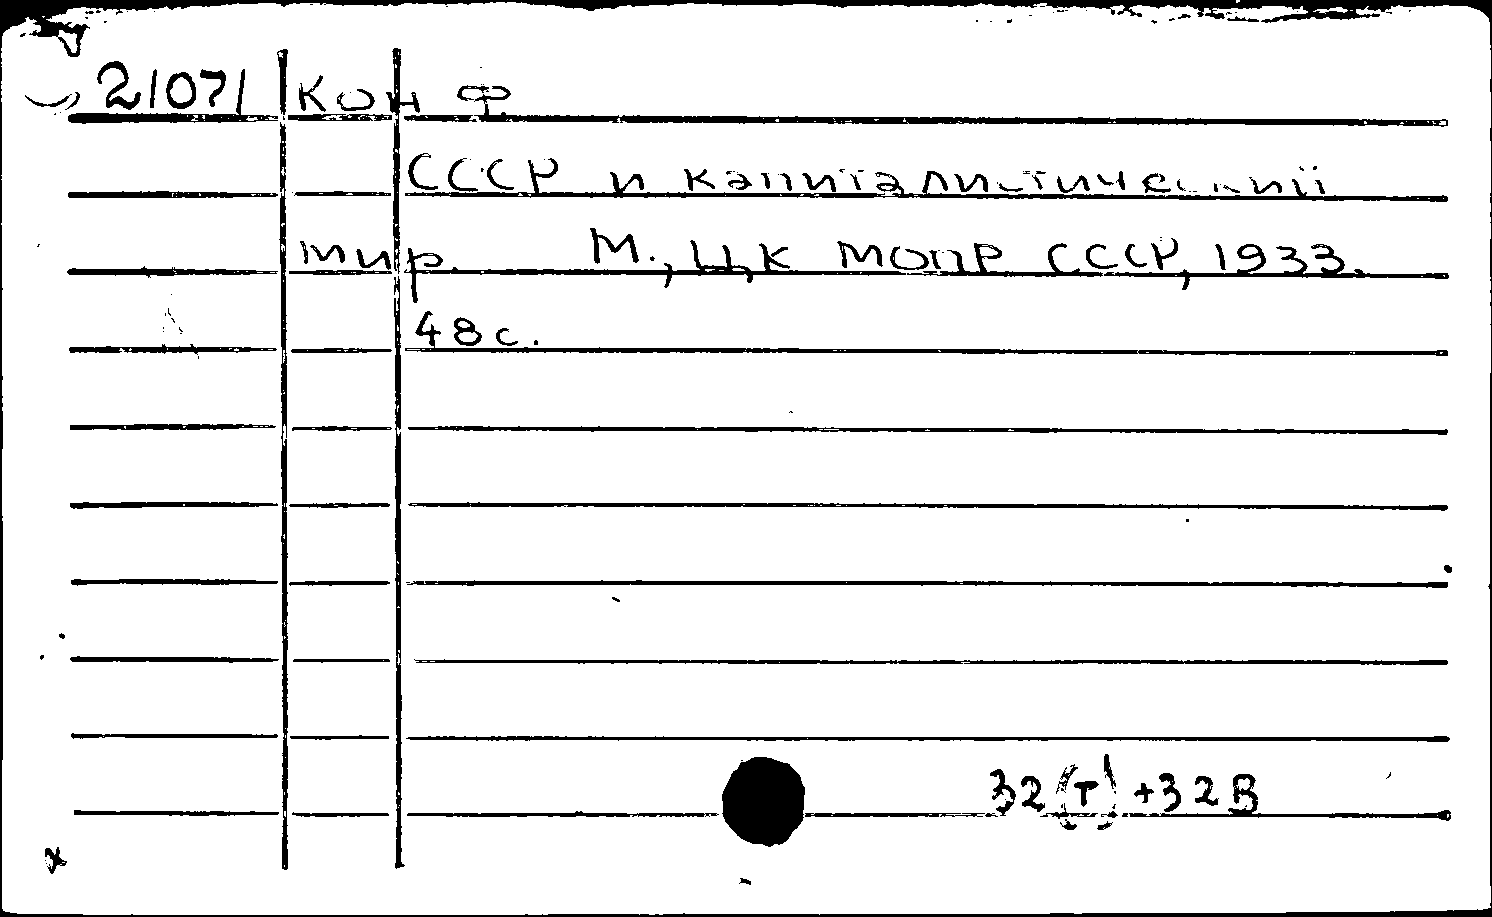 21071 Кон Ф.
СССР и капиталистический
мир. М., ЦК МОПР СССР, 1933.
48 с.
32(Т) +32В